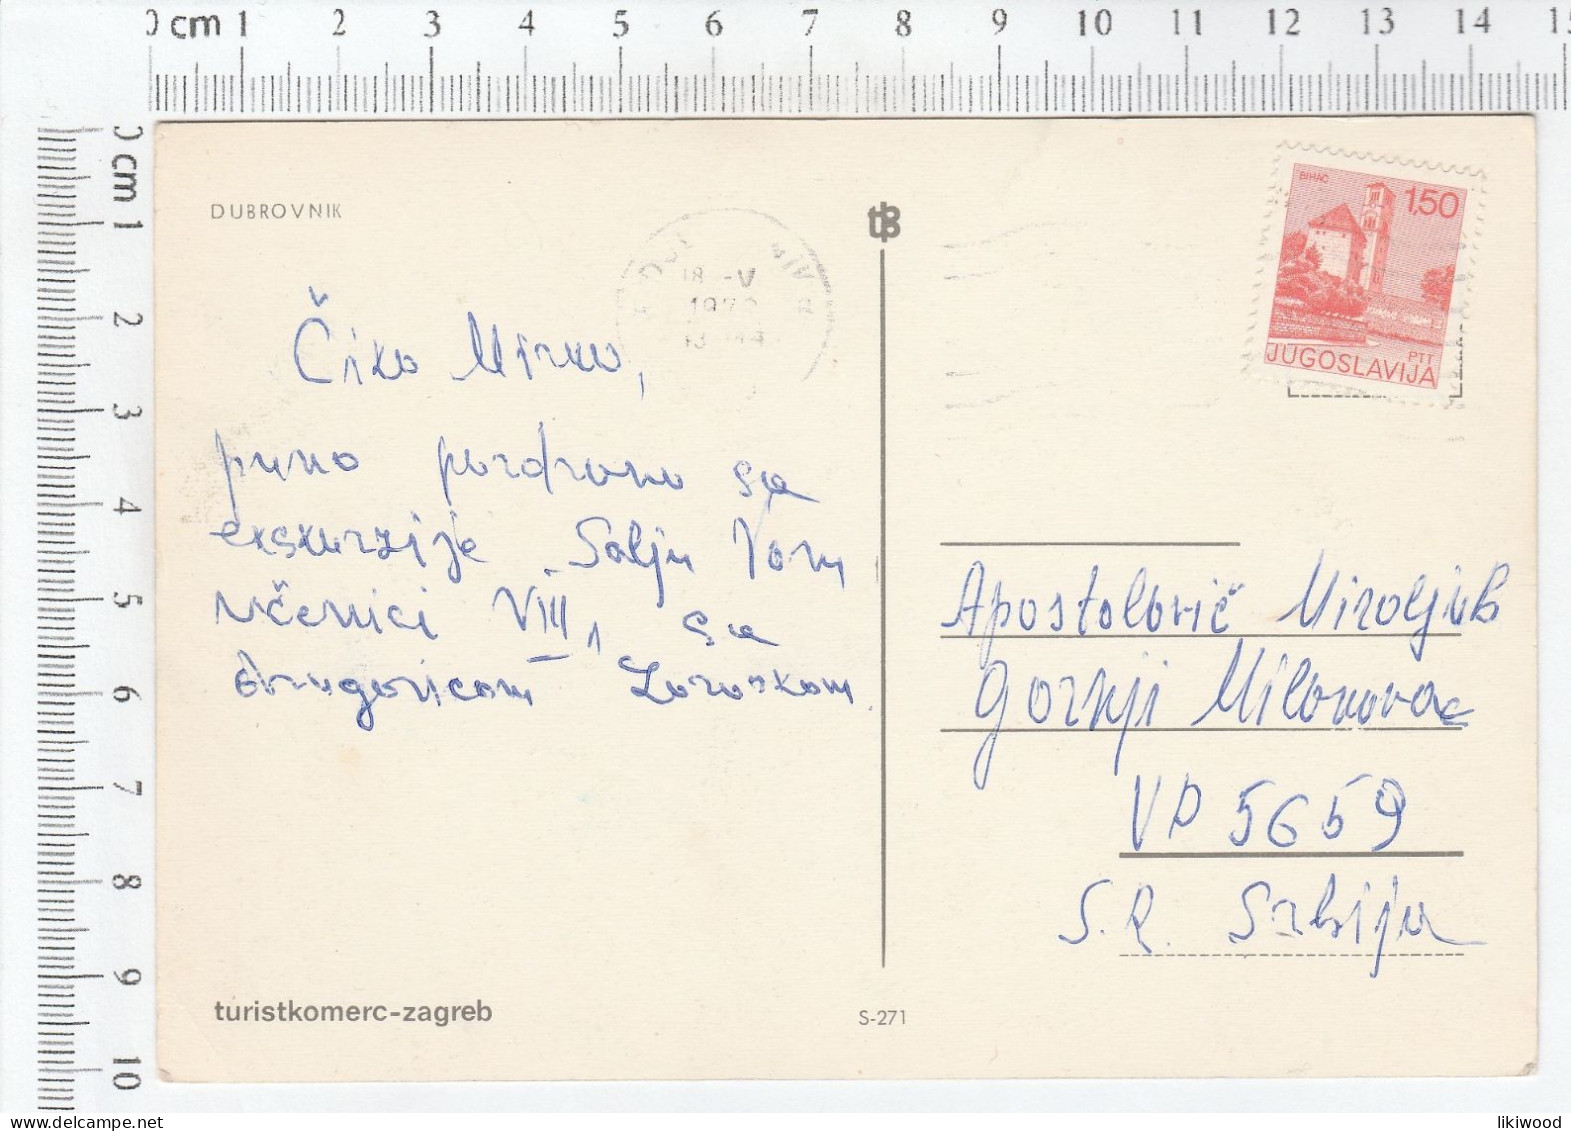 0 cm 1 2 3 4 5 6 7 8 9 10 11 12 13 14 15
0 cm 1 2 3 4 5 6 7 8 9 10
DUBROVNIK
18 -V
13
BIHAĆ
1,50
PTT
JUGOSLAVIJA
Čika Mirko,
puno pozdrava sa
ekskurzije šalju Vam
učenici VIII1 sa
drugaricom Zoroskom.
Apostolović Miroljub
Gornji Milanovac
VP 5659
S.R. Srbija
turistkomerc-zagreb
S-271
likiwood